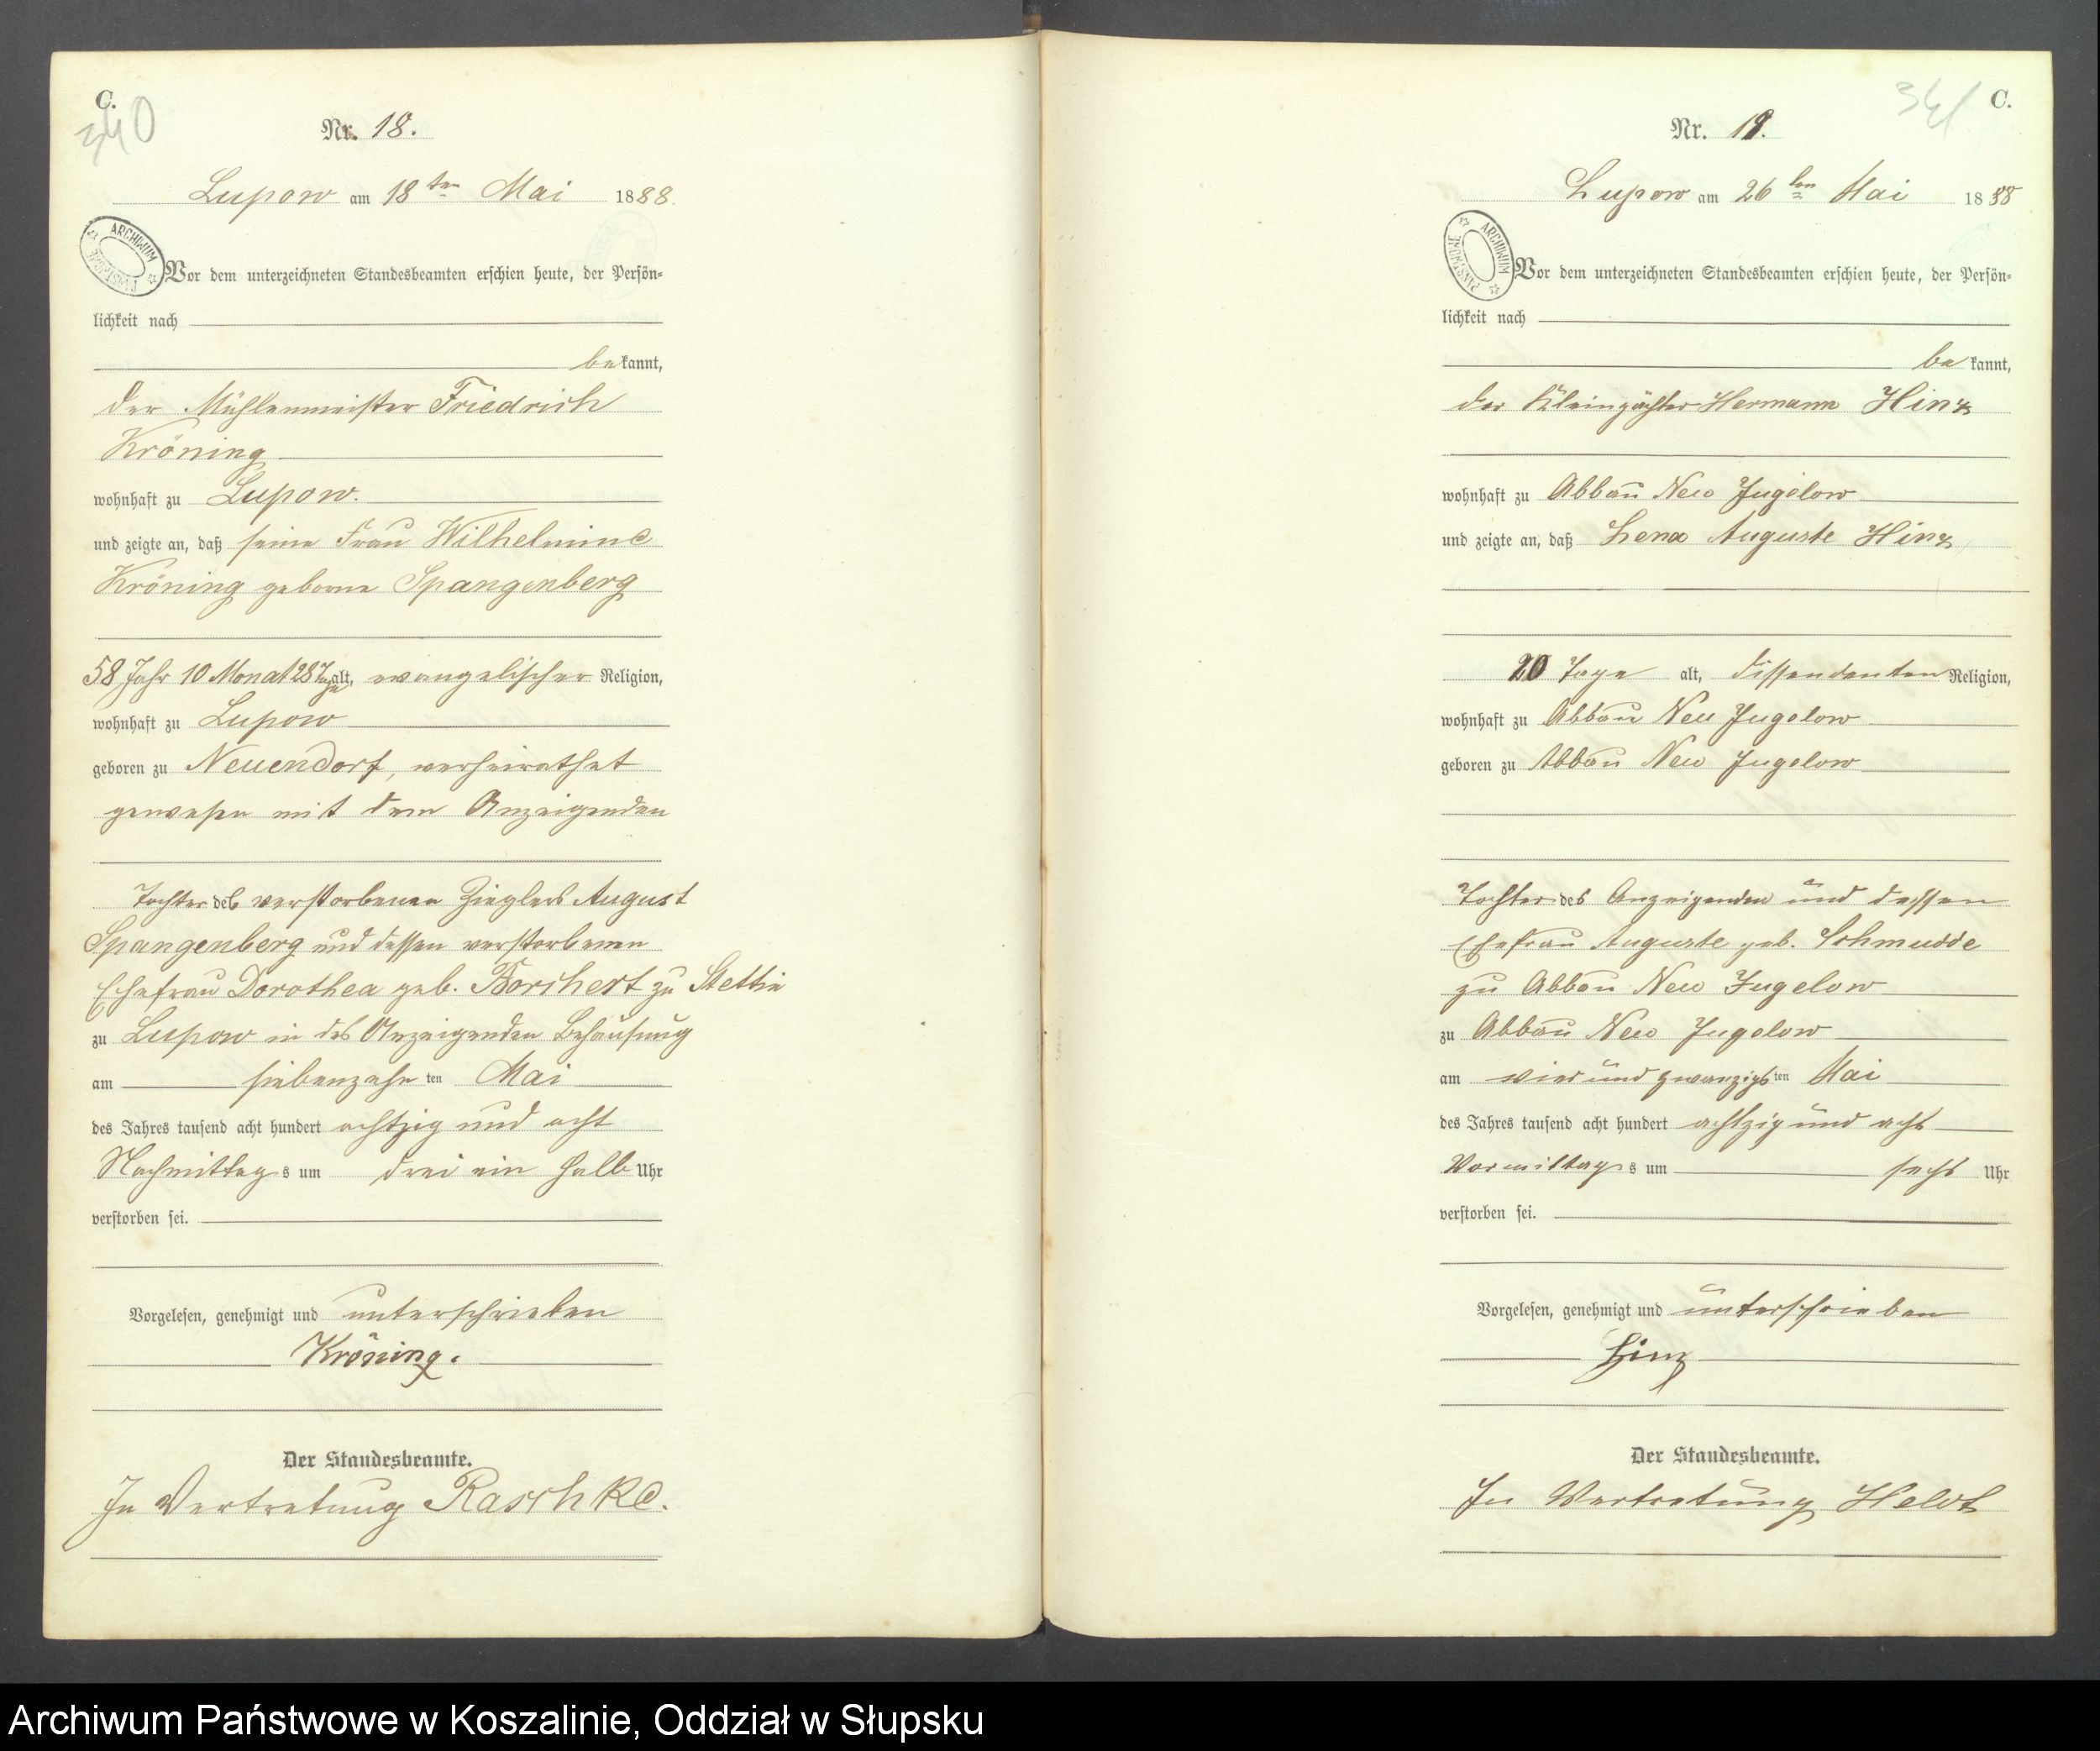 C.
340
Nr. 18.
Lupow am 18ten Mai 1888.
ARCHIWUM PAŃSTWOWE
Vor dem unterzeichneten Standesbeamten erschien heute, der Persön-
lichkeit nach
bekannt,
der Mühlenmeister Friedrich
Kröning
wohnhaft zu Lupow.
und zeigte an, daß seine Frau Wilhelmine
Kröning geborne Spangenberg
58 Jahr 10 Monat 28 Tage alt, evangelischer Religion,
wohnhaft zu Lupow
geboren zu Neuendorf, verheirathet
gewesen mit dem Anzeigenden
Tochter des verstorbenen Zieglers August
Spangenberg und dessen verstorbenen
Ehefrau Dorothea geb. Borchert zu Stettin
zu Lupow in des Anzeigenden Behausung
am siebenzehnten Mai
des Jahres tausend acht hundert achtzig und acht
Nachmittags um drei ein halb Uhr
verstorben sei.
Vorgelesen, genehmigt und unterschrieben
Kröning.
Der Standesbeamte.
In Vertretung Raschke.
341
C.
Nr. 19.
Lupow am 26ten Mai 1888
ARCHIWUM PAŃSTWOWE
Vor dem unterzeichneten Standesbeamten erschien heute, der Persön-
lichkeit nach
bekannt,
der Kleinpächter Hermann Hinz
wohnhaft zu Abbau Neu Jugelow
und zeigte an, daß Lena Auguste Hinz
20 Tage alt, dissendenten Religion,
wohnhaft zu Abbau Neu Jugelow
geboren zu Abbau Neu Jugelow
Tochter des Anzeigenden und dessen
Ehefrau Auguste geb. Schmudde
zu Abbau Neu Jugelow
zu Abbau Neu Jugelow
am vier und zwanzigsten Mai
des Jahres tausend acht hundert achtzig und acht
Vormittags um sechs Uhr
verstorben sei.
Vorgelesen, genehmigt und unterschrieben
Hinz
Der Standesbeamte.
In Vertretung Heldt
Archiwum Państwowe w Koszalinie, Oddział w Słupsku